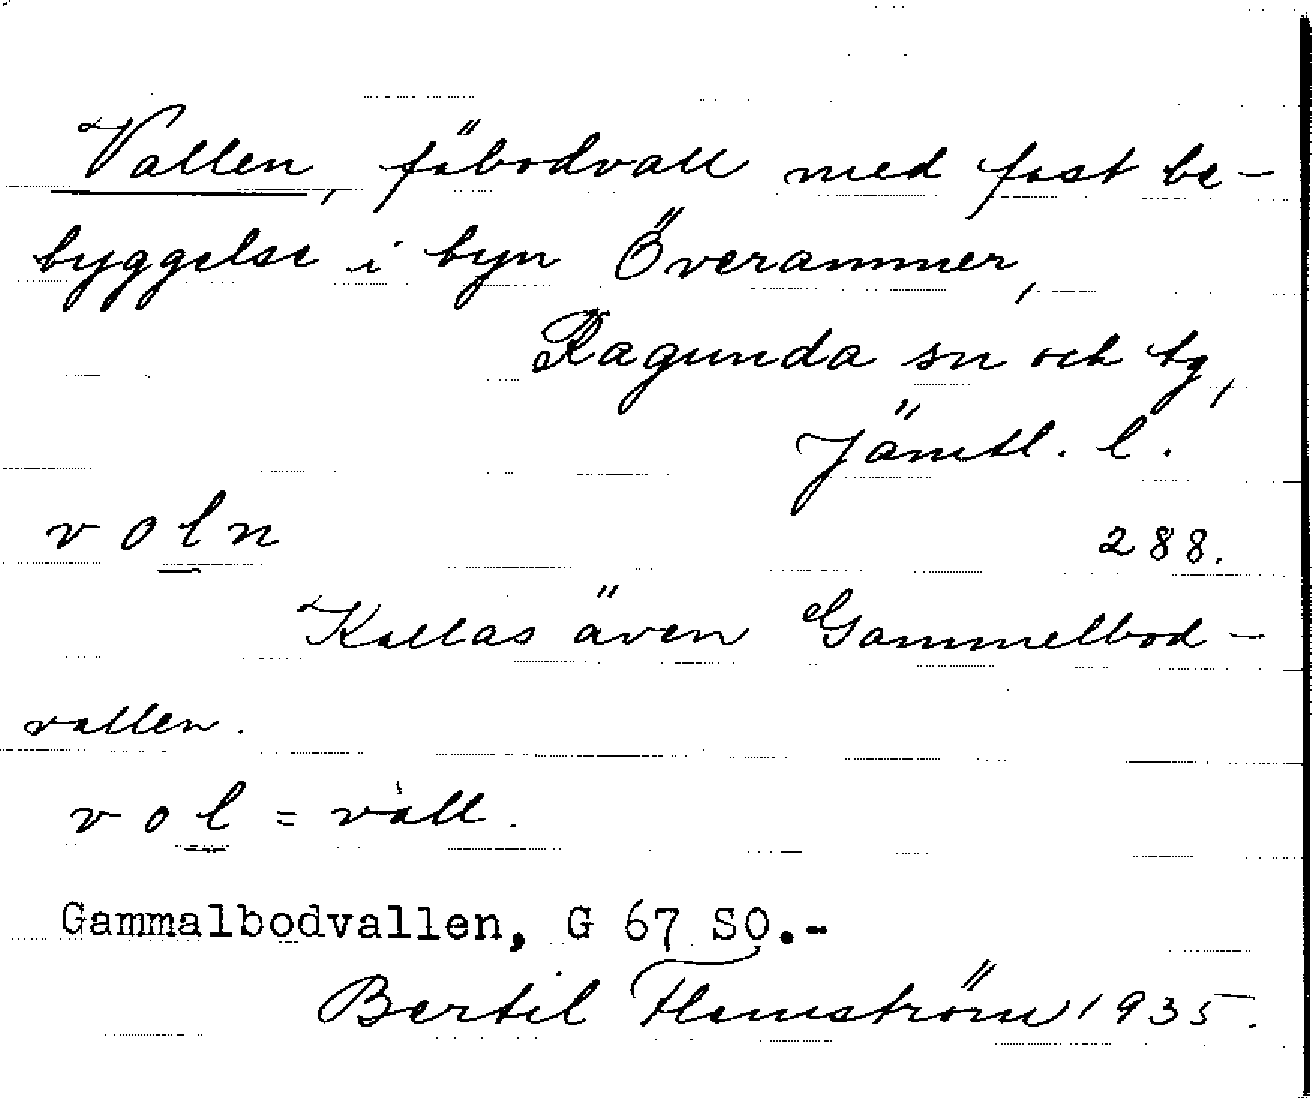 Vallen, fäbodvall med fast be-
byggelse i byn Överammer,
Ragunda sn och tg,
Jämtl. l.
voln 288.
Kallas även Gammelbod-
vallen.
vol = vall.
Gammalbodvallen, G 67 SO.-
Bertil Flemström 1935.